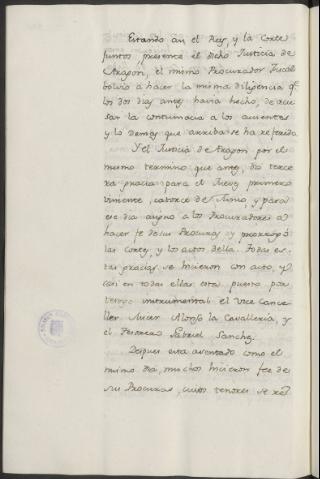 Estando an el Rey, y la Corte
juntos presente el dicho Justicia de
Aragon, el mismo Procurador Fiscal
bolvio a hacer la misma diligencia q.
los dos dias antes havia hecho, de acu
sar la contumacia a los ausentes
y lo demas que arriba se ha referido
Y el Justicia de Aragon por el
mismo termino que antes, dio terce
ra gracia para el Jueves primero
viniente, catorce de Junio, y para
ese dia asigno a los Procuradores a
hacer fe de sus Procuras y prorrogó
las Cortes, y los actos della. Todas es
tas gracias se hicieron con acto, y
asi en todas ellas esta puesto por
testigo instrumental el Vice Cance
ller Micer Alonso la Cavalleria, y
el Tesorero Gabriel Sanchez.
Despues esta asentado como el
mismo dia, muchos hicieron fee de
sus Procuras, cuios tenores se